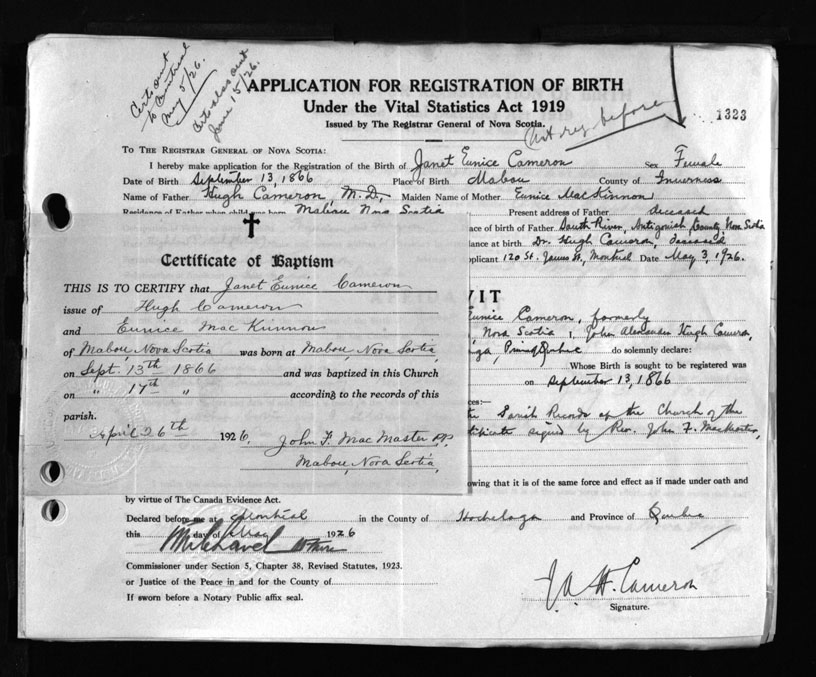 Certs out
to Montreal
May 5/26.
Certs also out
June 15/26.
APPLICATION FOR REGISTRATION OF BIRTH
Under the Vital Statistics Act 1919
Issued by The Registrar General of Nova Scotia.
Not reg. before
1323
TO THE REGISTRAR GENERAL OF NOVA SCOTIA:
I hereby make application for the Registration of the Birth of Janet Eunice Cameron Sex Female
Date of Birth September 13, 1866 Place of Birth Mabou County of Inverness
Name of Father Hugh Cameron, M.D. Maiden Name of Mother Eunice MacKinnon
Residence of Father when child was born Mabou Nova Scotia Present address of Father deceased
ace of birth of Father South River, Antigonish County, Nova Scotia
dance at birth Dr. Hugh Cameron, deceased
pplicant 120 St. James St, Montreal Date May 3, 1926.
Certificate of Baptism
THIS IS TO CERTIFY that Janet Eunice Cameron
issue of Hugh Cameron
and Eunice Mac Kinnon
of Mabou Nova Scotia was born at Mabou, Nova Scotia,
on Sept. 13th 1866 and was baptized in this Church
on " 17th " according to the records of this
parish.
April 26th 1926, John F. Mac Master P.P.
Mabou, Nova Scotia,
VIT
Eunice Cameron, formerly
, Nova Scotia I, John Alexander Hugh Cameron,
do solemnly declare:
Whose Birth is sought to be registered was
on September 13, 1866
ces:—
Parish Records of the Church of the
tificate signed by Rev. John F. MacMaster,
owing that it is of the same force and effect as if made under oath and
by virtue of The Canada Evidence Act.
Declared before me at Montreal in the County of Hochelaga and Province of Quebec
this day of May 1926
Commissioner under Section 5, Chapter 38, Revised Statutes, 1923.
or Justice of the Peace in and for the County of
If sworn before a Notary Public affix seal.
J. A. H. Cameron
Signature.